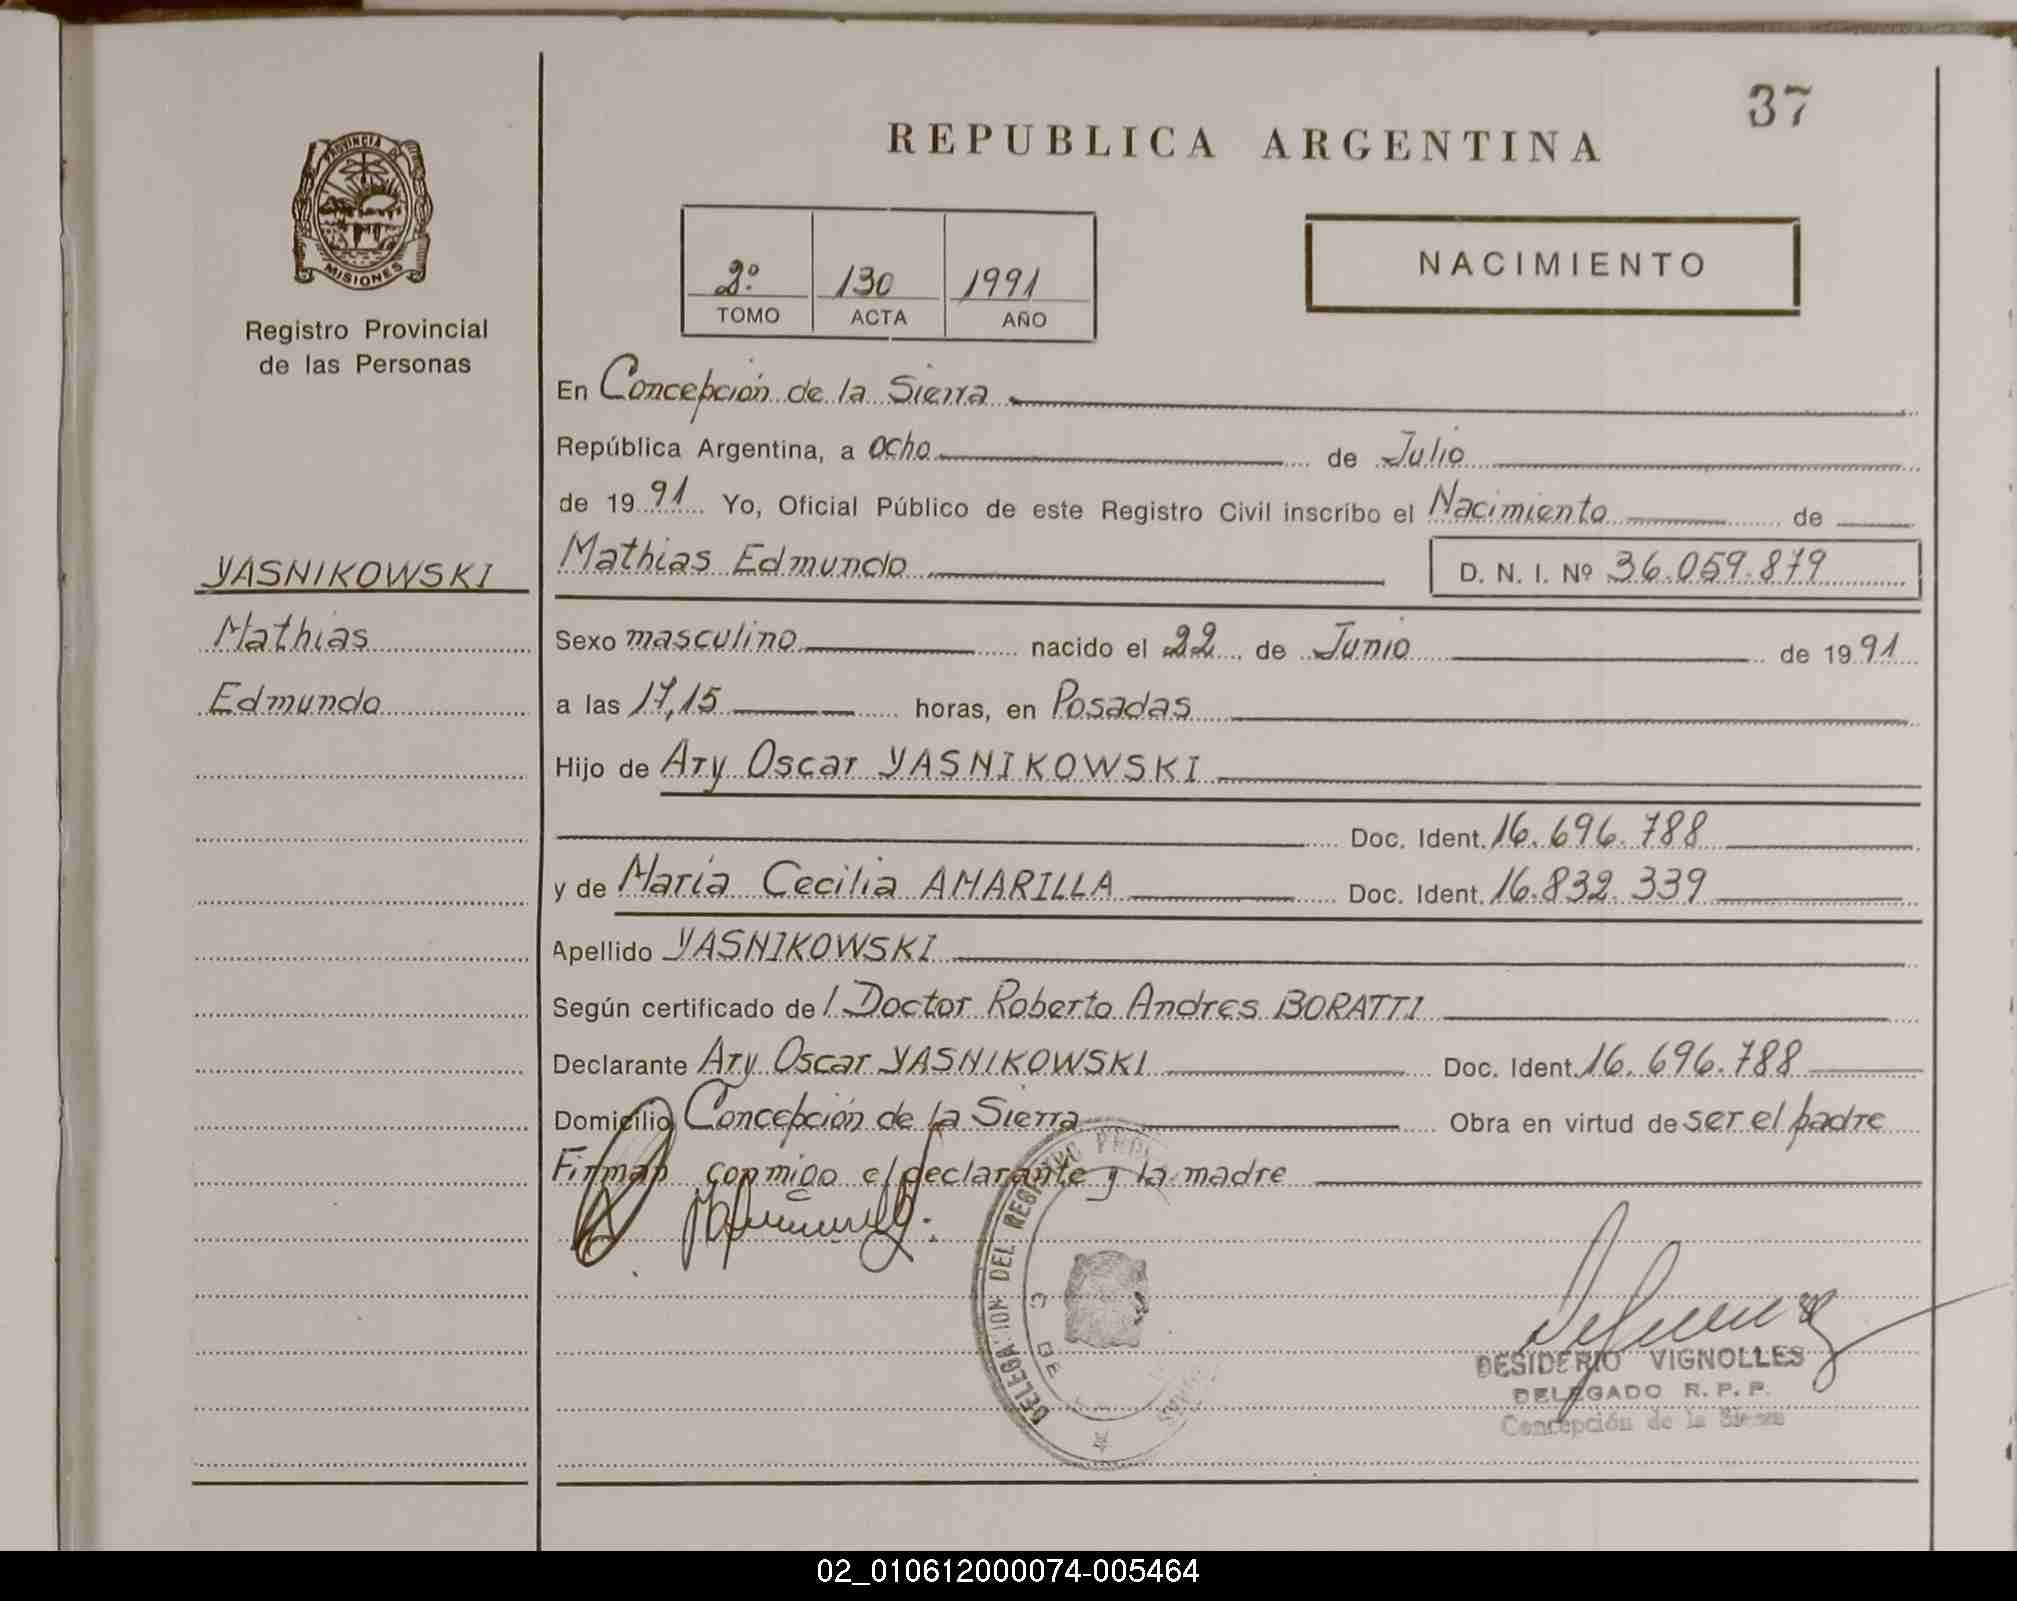 37
REPUBLICA ARGENTINA
PROVINCIA DE
MISIONES
Registro Provincial
de las Personas
2º 130 1991
TOMO ACTA AÑO
NACIMIENTO
En Concepción de la Sierra
República Argentina, a ocho de Julio
de 1991 Yo, Oficial Público de este Registro Civil inscribo el Nacimiento de
Mathias Edmundo D. N. I. Nº 36.059.879
YASNIKOWSKI
Mathias
Edmundo
Sexo masculino nacido el 22 de Junio de 1991
a las 17,15 horas, en Posadas
Hijo de Ary Oscar YASNIKOWSKI
Doc. Ident. 16.696.788
y de María Cecilia AMARILLA Doc. Ident. 16.832.339
Apellido YASNIKOWSKI
Según certificado de l Doctor Roberto Andres BORATTI
Declarante Ary Oscar YASNIKOWSKI Doc. Ident. 16.696.788
Domicilio Concepción de la Sierra Obra en virtud de ser el padre
Firman conmigo el declarante y la madre
DELEGACION DEL REGISTRO
DE
DESIDERIO VIGNOLLES
DELEGADO R. P. P.
Concepción de la Sierra
02_010612000074-005464